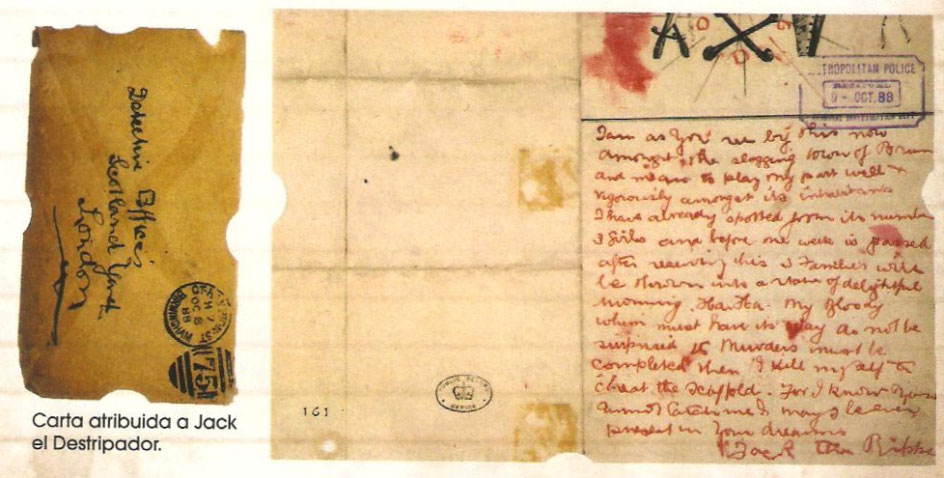 Detective Office
Scotland Yard
London
OC 8
88
75
Carta atribuida a Jack
el Destripador.
161
TROPOLITAN POLICE
RECEIVED
9 - OCT. 88
INVESTIGATION DEPT
I am as you see by this now
amongst the slogging town of Brum
and mean to play my part well &
vigorously amongst its inhabitants
I have already spotted from its number
3 girls and before one week is passed
after receiving this 3 Families will
be thrown into a state of delightful
mourning. Ha. Ha. My Bloody
whim must have its way do not be
surprised 15 Murders must be
completed then I kill myself to
cheat the Scaffold. For I know you
cannot catch me & may I be even
present in your dreams
Jack the Rippe